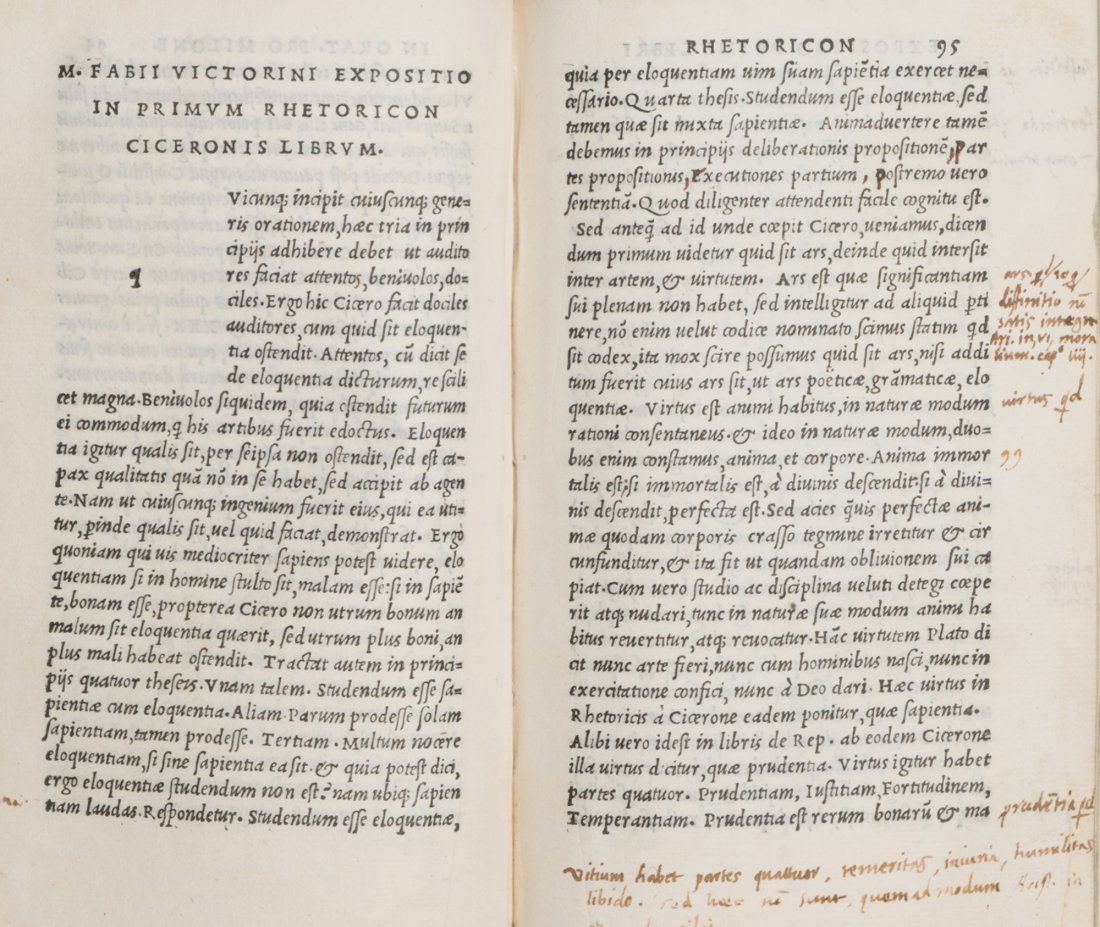 M. FABII VICTORINI EXPOSITIO
IN PRIMVM RHETORICON
CICERONIS LIBRVM.
q
Vicunq; incipit cuiuscunq; gene=
ris orationem, hæc tria in prin
cipijs adhibere debet ut audito
res faciat attentos, beniuolos, do=
ciles. Ergo hic Cicero facit dociles
auditores, cum quid sit eloquen-
tia ostendit. Attentos, cū dicit se
de eloquentia dicturum, re scili
cet magna. Beniuolos siquidem, quia ostendit futurum
ei commodum, q̃ his artibus fuerit edoctus. Eloquen
tia igitur qualis sit, per seipsa non ostendit, sed est ca-
pax qualitatis quā nō in se habet, sed accipit ab agen
te. Nam ut cuiuscunq; ingenium fuerit eius, qui ea uti=
tur, ꝑinde qualis sit, uel quid faciat, demonstrat. Ergo
quoniam qui uis mediocriter sapiens potest uidere, elo
quentiam si in homine stulto sit, malam esse: si in sapiē
te, bonam esse, propterea Cicero non utrum bonum an
malum sit eloquentia quærit, sed utrum plus boni, an
plus mali habeat ostendit. Tractat autem in princi-
pijs quatuor theseis. Vnam talem. Studendum esse sa=
pientiæ cum eloquentia. Aliam. Parum prodesse solam
sapientiam, tamen prodesse. Tertiam. Multum nocere
eloquentiam, si sine sapientia ea sit. & quia potest dici,
ergo eloquentiæ studendum non est? nam ubiq; sapien
nam laudas. Respondetur. Studendum esse eloquentiæ,
RHETORICON 95
quia per eloquentiam uim suam sapiētia exercet ne=
cessario. Quarta thesis. Studendum esse eloquentiæ, sed
tamen quæ sit iuxta sapientiæ. Animaduertere tamē
debemus in principijs deliberationis propositionē, Par
tes propositionis, Executiones partium, postremo uero
sententiā. Quod diligenter attendenti facile cognitu est.
Sed anteq̃ ad id unde cœpit Cicero, ueniamus, dicen
dum primum uidetur quid sit ars, deinde quid intersit
inter artem, & uirtutem. Ars est quæ significantiam
sui plenam non habet, sed intelligitur ad aliquid ꝑti
nere, nō enim uelut codice nominato scimus statim qd
sit codex, ita mox scire possumus quid sit ars, nisi addi
tum fuerit cuius ars sit, ut ars poëticæ, grāmaticæ, elo
quentiæ. Virtus est animi habitus, in naturæ modum
rationi consentaneus. & ideo in naturæ modum, duo=
bus enim constamus, anima, et corpore. Anima immor
talis est; si immortalis est, à diuinis descendit: si à diui=
nis descendit, perfecta est. Sed acies q̃uis perfectæ ani-
mæ quodam corporis crasso tegmine irretitur & cir
cunfunditur, & ita fit ut quandam obliuionem sui ca
piat. Cum uero studio ac disciplina ueluti detegi cœpe
rit atq; nudari, tunc in naturæ suæ modum animi ha
bitus reuertitur, atq; reuocatur. Hāc uirtutem Plato di
cit nunc arte fieri, nunc cum hominibus nasci, nunc in
exercitatione confici, nunc à Deo dari. Hæc uirtus in
Rhetoricis à Cicerone eadem ponitur, quæ sapientia.
Alibi uero idest in libris de Rep. ab eodem Cicerone
illa uirtus dicitur, quæ prudentia. Virtus igitur habet
partes quatuor. Prudentiam, Iustitiam, Fortitudinem,
Temperantiam. Prudentia est rerum bonarū & ma
ars qd
diffinitio nō
satis integra
Ari. in. vi. mora
lium. cap° iiij.
uirtus qd
99
prudētia qd
Vitium habet partes quattuor, temeritas, iniuria, humilitas
libido. Sed hoc nō sunt, quemadmodum Arist. in